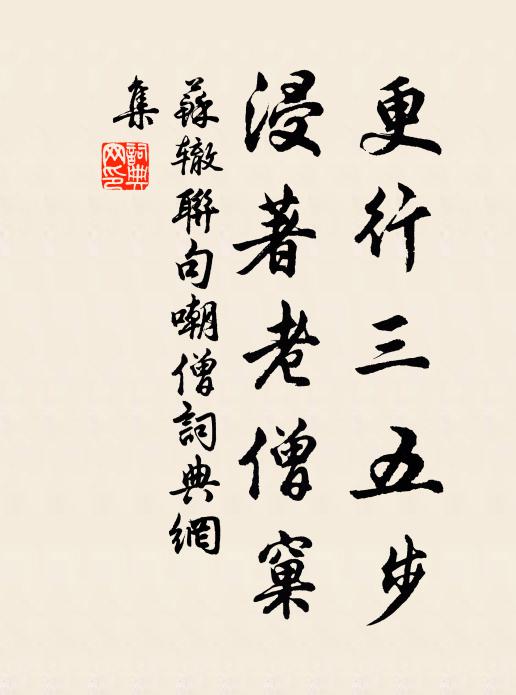 更行三五步
浸著老僧窠
蘇轍聯句嘲僧詞典網
集
詞典
网印